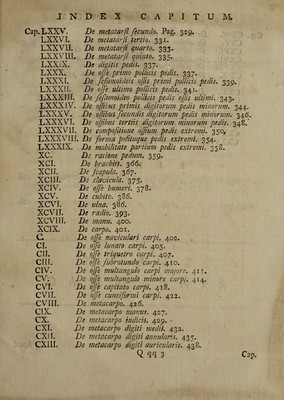 INDEX CAPITUM.
Cap. LXXV. De metatarsi secundo. Pag. 329.
LXXVI. De metatarsi tertio. 331.
LXXVII. De metatarsi quarto. 333.
LXXVIII. De metatarsi quinto. 335.
LXXIX. De digitis pedis. 337.
LXXX. De osse primo pollicis pedis. 337.
LXXXI. De sesamoideis ossis primi pollicis pedis. 339.
LXXXII. De osse ultimo pollicis pedis. 341.
LXXXIII. De sesamoideo pollicis pedis ossis ultimi. 343.
LXXXIV. De ossibus primis digitorum pedis minorum. 344.
LXXXV. De ossibus secundis digitorum pedis minorum. 346.
LXXXVI. De ossibus tertiis digitorum minorum pedis. 348.
LXXXVII. De compositione ossium pedis extremi. 350.
LXXXVIII. De forma positúque pedis extremi. 354.
LXXXIX. De mobilitate partium pedis extremi. 358.
XC. De ratione pedum. 359.
XCI. De brachiis. 366.
XCII. De scapula. 367.
XCIII. De clavicula. 375.
XCIV. De osse humeri. 378.
XCV. De cubito. 386.
XCVI. De ulna. 386.
XCVII. De radio. 393.
XCVIII. De manu. 400.
XCIX. De carpo. 401.
C. De osse naviculari carpi. 402.
CI. De osse lunato carpi. 405.
CII. De osse triquetro carpi. 407.
CIII. De osse subrotundo carpi. 410.
CIV. De osse multangulo carpi majore. 411.
CV. De osse multangulo minore carpi. 414.
CVI. De osse capitato carpi. 418.
CVII. De osse cuneiformi carpi. 422.
CVIII. De metacarpo. 426.
CIX. De metacarpo manus. 427.
CX. De metacarpo indicis. 429.
CXI. De metacarpo digiti medii. 432.
CXII. De metacarpo digiti annularis. 435.
CXIII. De metacarpo digiti auricularis. 438.
Q qq 3 Cap.